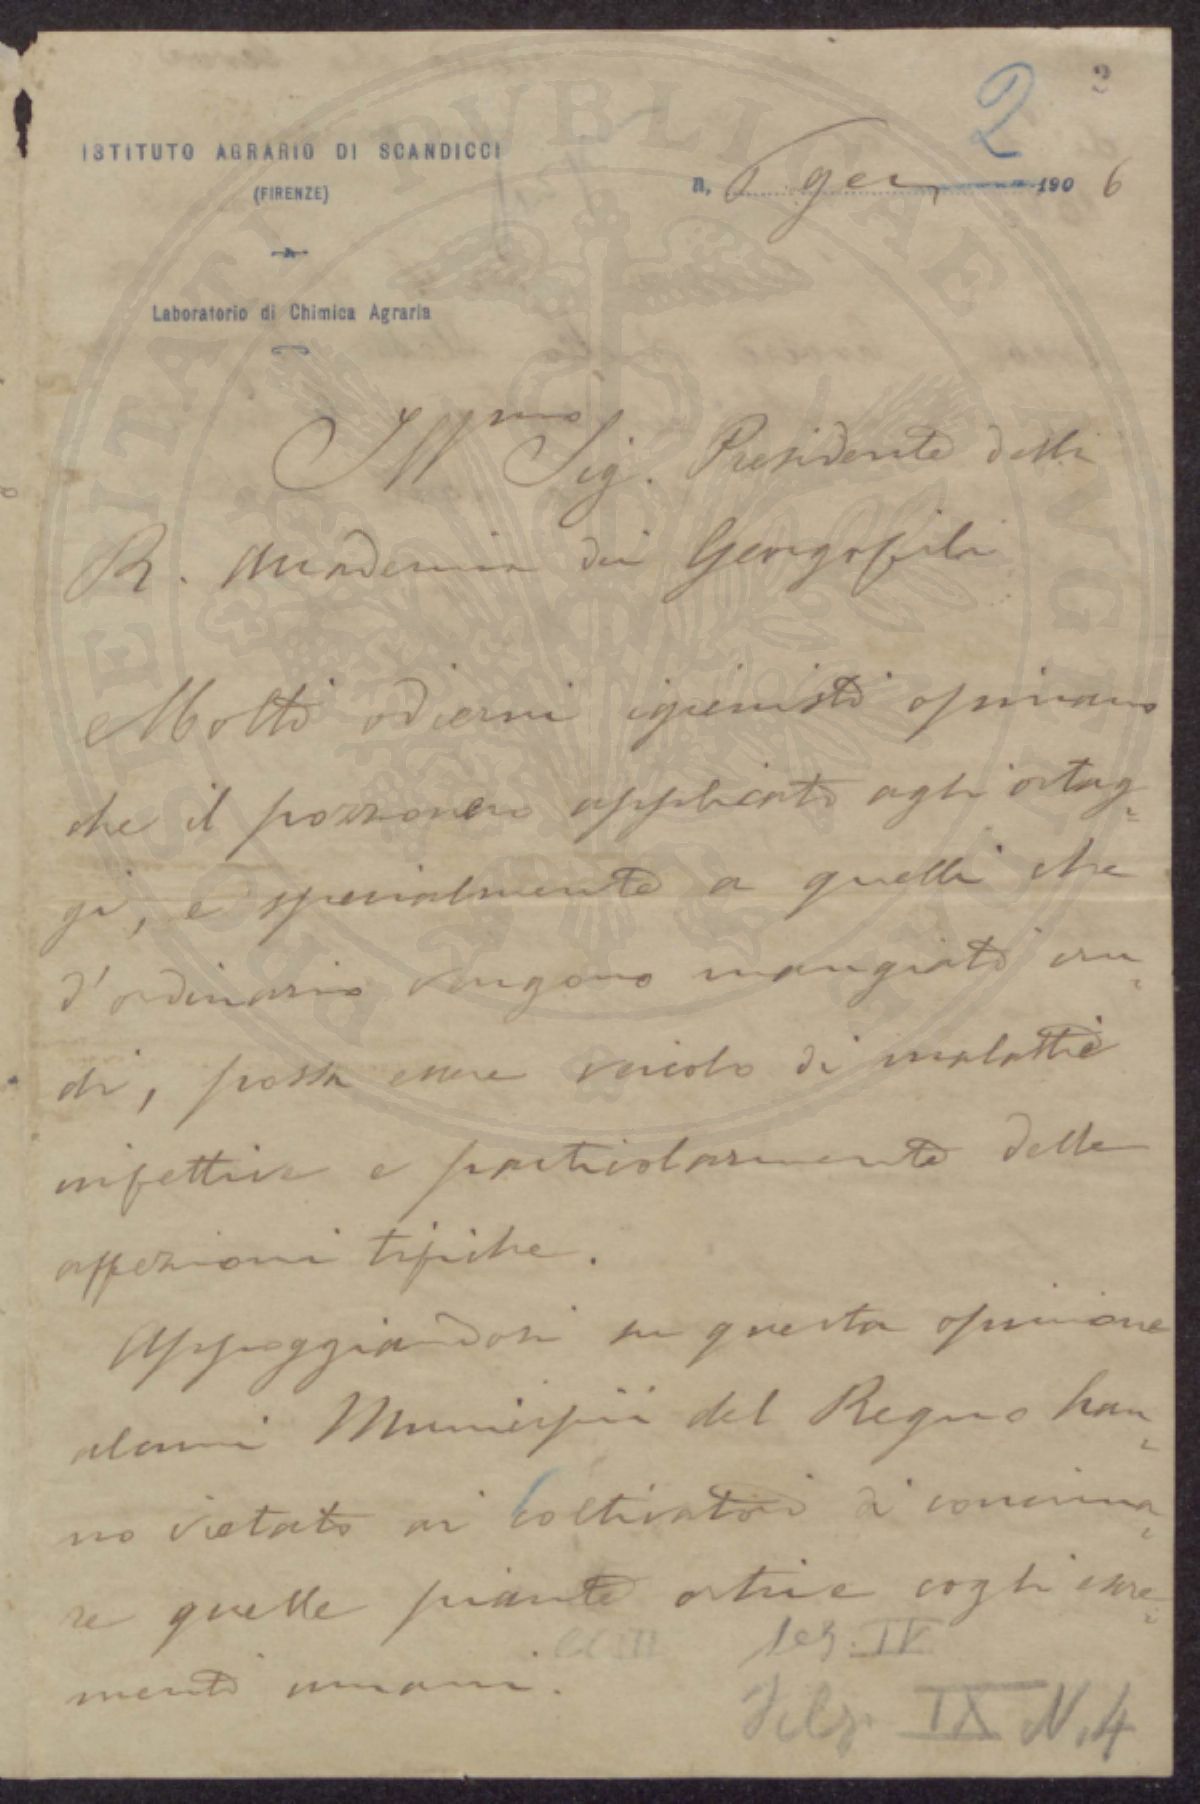 2
3
ISTITUTO AGRARIO DI SCANDICCI
(FIRENZE)
n, gen 1906
Laboratorio di Chimica Agraria
Ill.mo Sig. Presidente della
R. Accademia dei Georgofili
Molti odierni igienisti opinano
che il pozzonero applicato agli ortag=
gi, e specialmente a quelli che
d'ordinario vengono mangiati cru=
di, possa essere veicolo di malattie
infettive e particolarmente delle
affezioni tifiche.
Appoggiandosi su questa opinione
alcuni Municipii del Regno han=
no vietato ai coltivatori di concima=
re quelle piante ortive cogli escre=
menti umani.
Lez. IV
Filz. IX N. 4
PUBLICAE